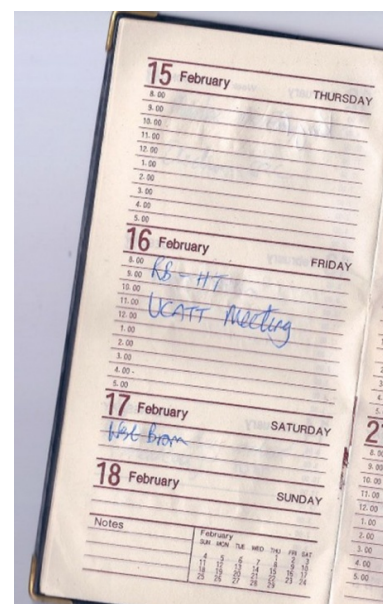 15 February THURSDAY
8.00
9.00
10.00
11.00
12.00
1.00
2.00
3.00
4.00
5.00
16 February FRIDAY
8.00
9.00 RB - HT
10.00
11.00 UCATT Meeting
12.00
1.00
2.00
3.00
4.00
5.00
17 February SATURDAY
West Brom
18 February SUNDAY
Notes
February
SUN MON TUE WED THU FRI SAT
1 2 3
4 5 6 7 8 9 10
11 12 13 14 15 16 17
18 19 20 21 22 23 24
25 26 27 28 29
2
8.00
9.00
10.00
11.00
12.00
1.00
2.00
3.00
4.00
5.00